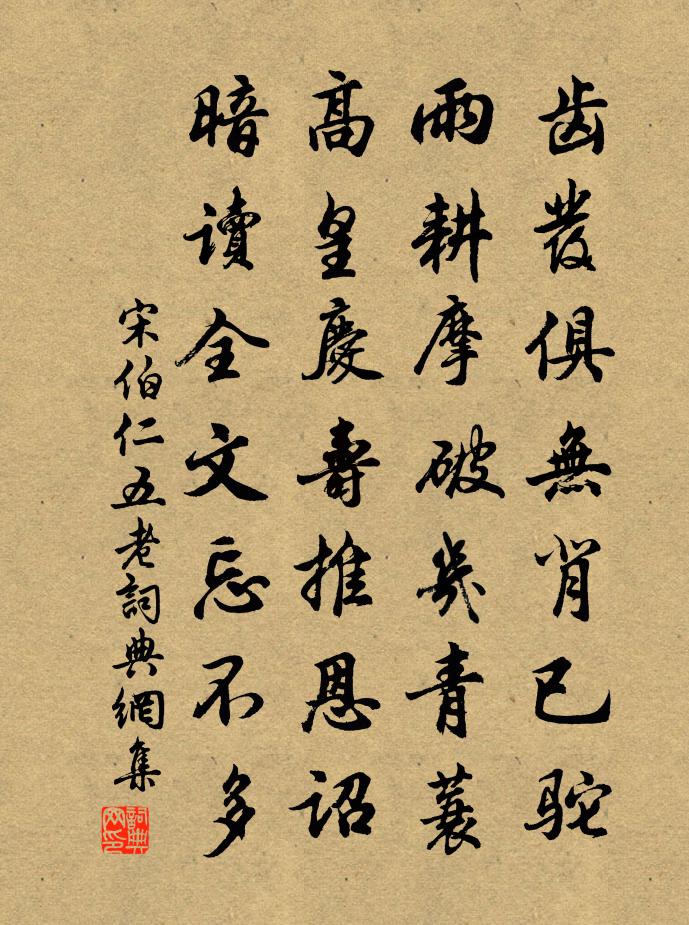 齿發俱無背已駝
雨耕摩破幾青蓑
高皇慶壽推恩詔
暗讀全文忘不多
宋伯仁五老詞典網集
詞典网印